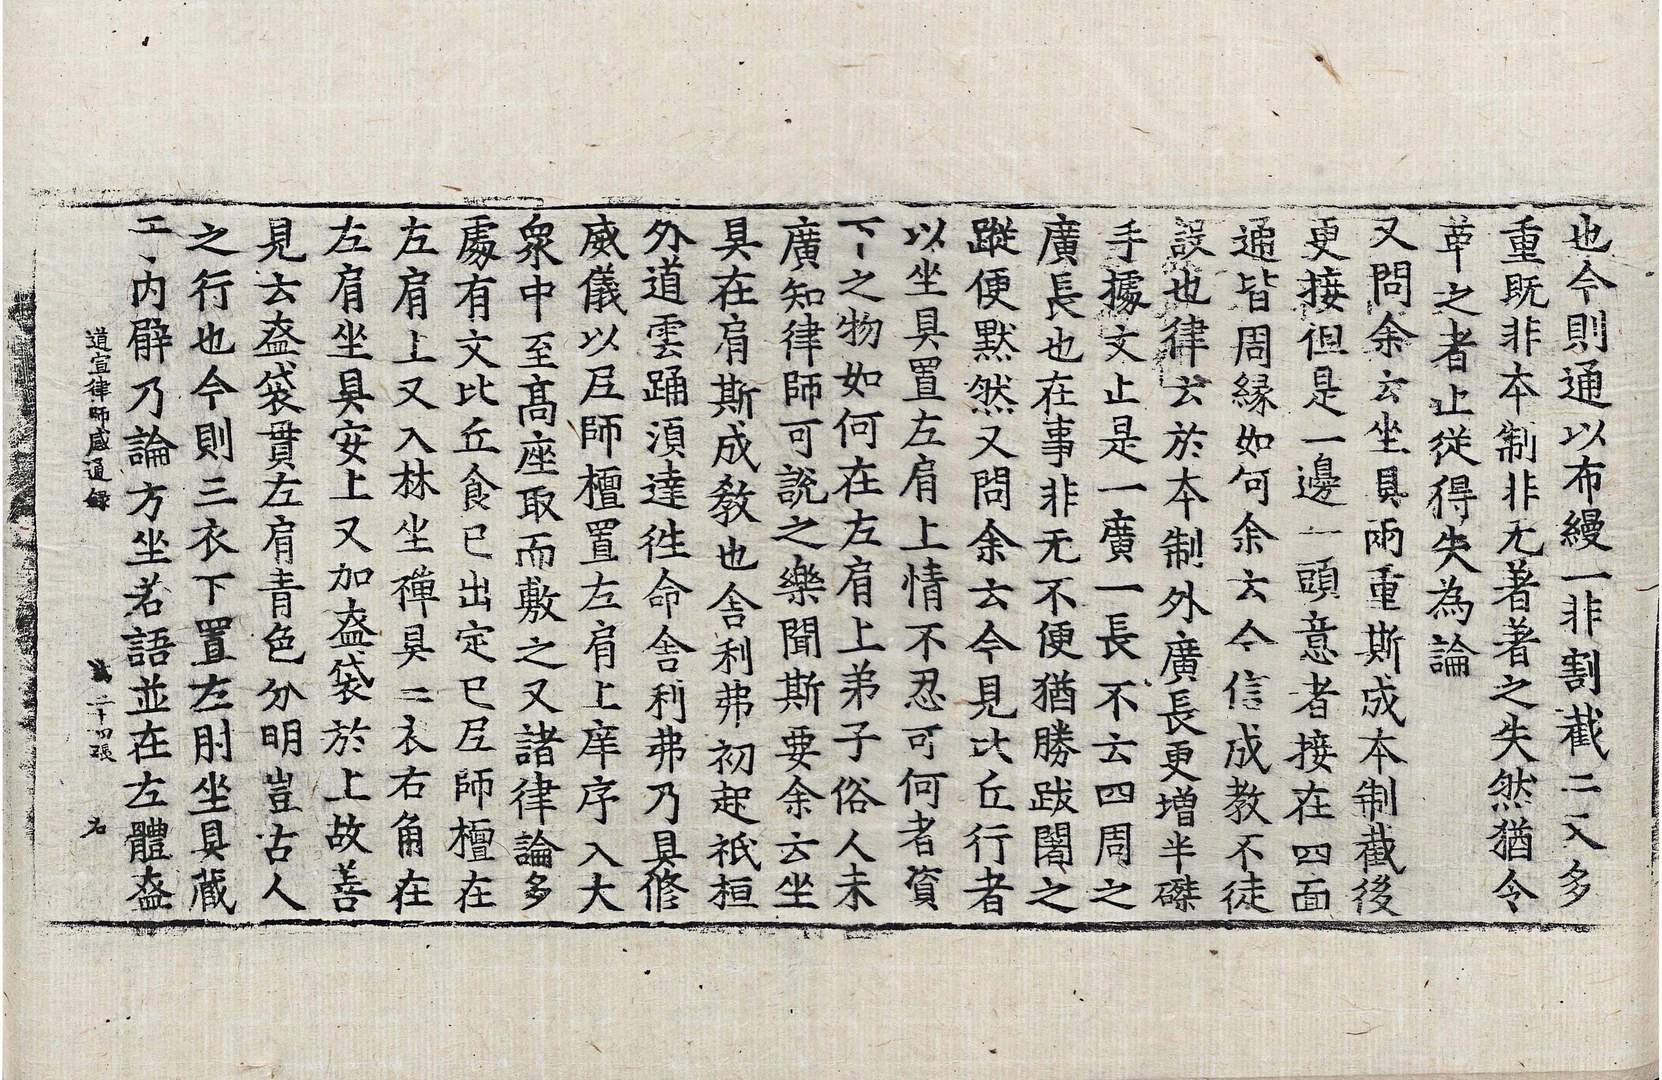 也今則通以布縵一非割截二又多
重既非本制非无著著之失然猶令
革之者止從得失為論
又問余云坐具兩重斯成本制截後
更接但是一邊一頭意者接在四面
通皆周緣如何余云今信成教不徒
設也律云於本制外廣長更增半磔
手據文止是一廣一長不云四周之
廣長也在事非无不便猶勝跋闍之
蹤便默然又問余云今見比丘行者
以坐具置左肩上情不忍可何者資
下之物如何在左肩上弟子俗人未
廣知律師可說之樂聞斯要余云坐
具在肩斯成教也舍利弗初起祇桓
外道雲踊湏達徃命舍利弗乃具修
威儀以尼師檀置左肩上庠序入大
衆中至高座取而敷之又諸律論多
處有文比丘食已出定已尼師檀在
左肩上又入林坐禪具三衣右角在
左肩坐具安上又加盔袋於上故善
見云盔袋貫左肩青色分明豈古人
之行也今則三衣下置左肘坐具藏
内僻乃論方坐若語並在左體盔
道宣律師感通録
二十四張